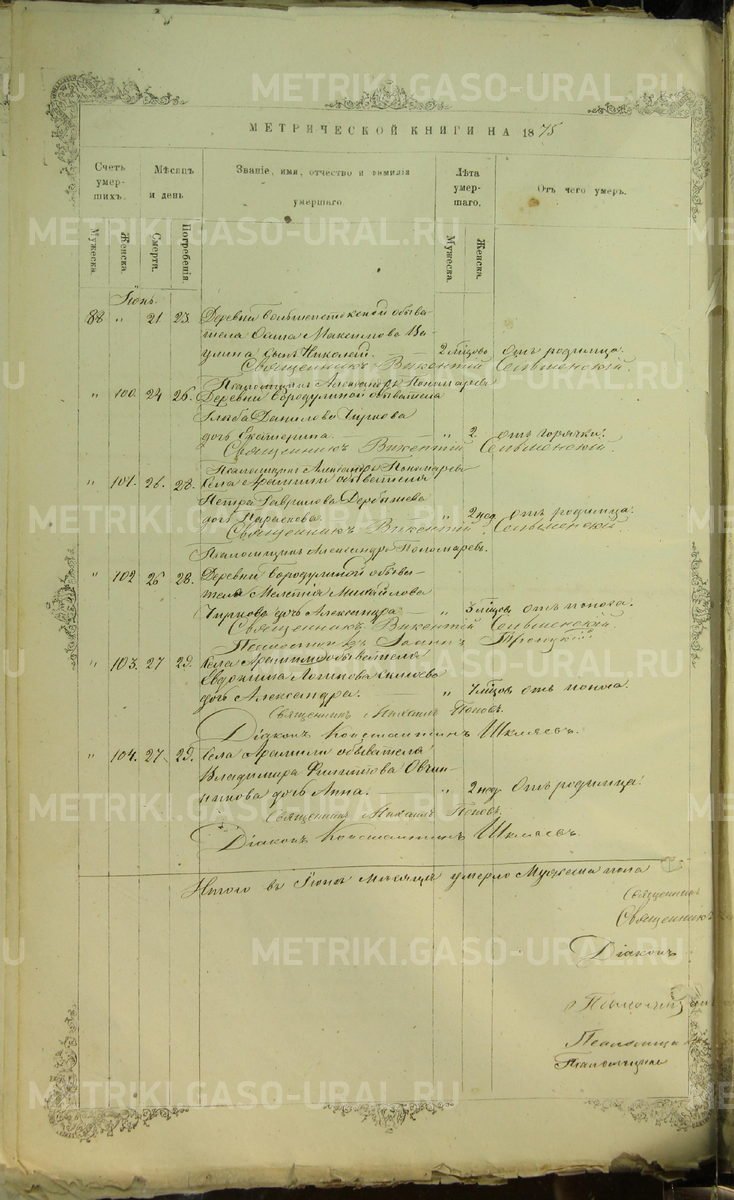 METRIKI.GASO-URAL.RU
МЕТРИЧЕСКОЙ КНИГИ НА 1875
Счетъ умерших. Мѣсяцъ и день Званіе, имя, отчество и фамилія умершаго Лѣта умершаго. Отъ чего умеръ.
Мужеска. Женска. Смерти. Погребенія. Мужеска. Женска.
Іюнь.
88 " 21 23. Деревни обыва-
теля Максимова Ва-
улина сынъ Николай. 2 мѣсяцовъ отъ родимца.
Священникъ Викентій
Псаломщикъ Александръ Пономаревъ
" 100 24 26. Деревни Бородулиной обывателя
Глѣба Данилова Чиркова
дочь Екатерина. " 2. отъ горячки.
Священникъ Викентій
Псаломщикъ Александръ Пономаревъ
" 101. 26. 28. Села Арамили обывателя
Петра Гаврилова Дербышева
дочь Параскова. " 2 нед. отъ родимца.
Священникъ Викентій
Псаломщикъ Александръ Пономаревъ.
" 102 26 28. Деревни Бородулиной обыва-
теля Мелетія Михайлова
Чиркова дочь Александра " 3 мѣсяцов. отъ поноса.
Священникъ Викентій
Псаломщикъ Іоаннъ Троицкій
" 103. 27 29. Села Арамили обывателя
Евдокима Логинова
дочь Александра. " 7 мѣсяцов. отъ поноса.
Священникъ Михаилъ Поповъ.
Діаконъ Константинъ Шкляевъ.
" 104. 27. 29. Села Арамили обывателя
Владимира Филиппова Овчин-
никова дочь Анна. " 2 нед. Отъ родимца.
Священникъ Михаилъ Поповъ.
Діаконъ Константинъ Шкляевъ.
Итого въ Іюнѣ мѣсяцѣ умерло Мужеска пола
Священникъ
Священникъ
Діаконъ
Псаломщикъ
Псаломщи
Псаломщикъ